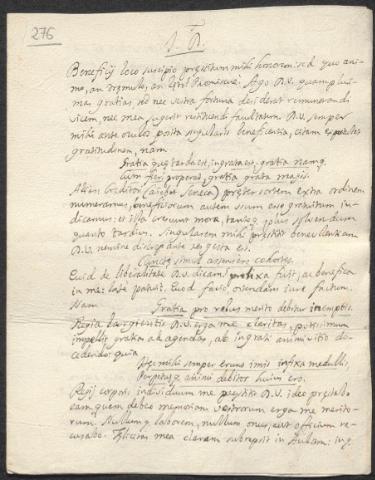 276
Beneficij loco suscipio præstitum mihi honorem: sed quo ani-
mo, an
Ago R.V. quamplu-
mas gratias, nec vestra fortuna desiderat remunerandi
vicem, nec mea suggerit restituendi facultatem. R.V. semper
mihi ante oculos posita singularis beneficentia, etiam
gratitudinem, nam
Gratia quæ tarda est, ingrata est, gratia namq
Cum fieri properat, gratia grata magis.
Alteri Creditori (asserit Seneca) præter sortem extra ordinem
numeramus, beneficiorum autem usum esse gratuitum iu-
dicamus: et illa crescunt mora, tantoq plus solvendum
quanto tardius. Singularem mihi præstitit benevolentiam
R.V. nemine discrepante res gesta est.
simul assensere cohortes.
Quid de liberalitate R.V. dicam? fuit, ac benefica
in me late patuit. Quod facio ostendam iure factum.
Nam Gratia pro rebus merito debetur inemptis.
R.V. erga me celeritas, potissimum
impellit gratiam ad agendas, ab ingrati animi vitio do-
cedendo: quia
mihi semper erunt imis infixa medullis,
Perpetuus animi debitor huius ero.
corpori individuum me præstitit R.V. ideo præstabo
eam, quem debeo memoriam vestrorum erga me merito-
rum. Nullumq laborem, nullum onus, aut officium re-
cusabo. mea clavam subrepsit in Aulam: in